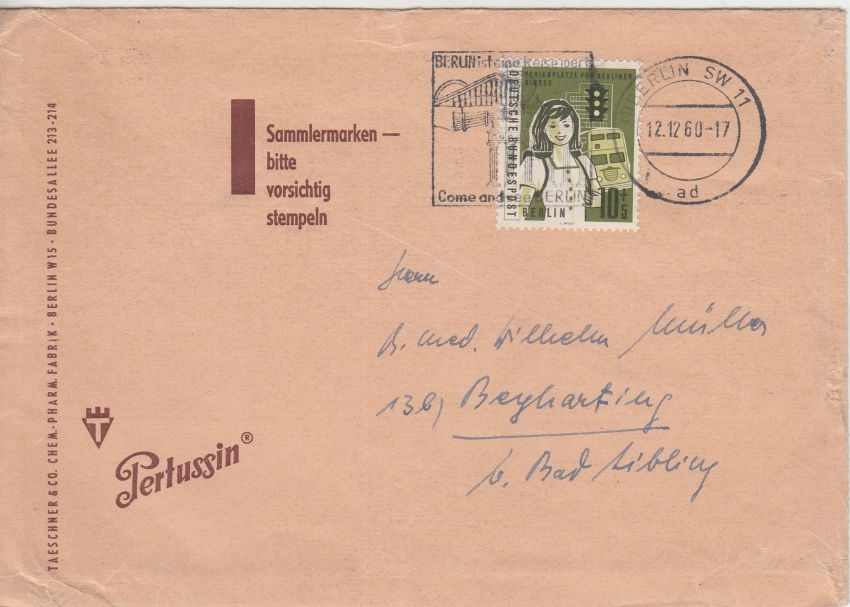 BERLIN ist eine Reise wert
Come and see BERLIN
FERIENPLÄTZE FÜR BERLINER
KINDER
DEUTSCHE BUNDESPOST
BERLIN
10+5
BERLIN SW 11
12.12.60-17
ad
Sammlermarken —
bitte
vorsichtig
stempeln
Herrn
Dr. med. Wilhelm Müller
13b) Beyharting
b. Bad Aibling
T
Pertussin®
TAESCHNER & CO. CHEM.-PHARM. FABRIK · BERLIN W 15 · BUNDESALLEE 213-214